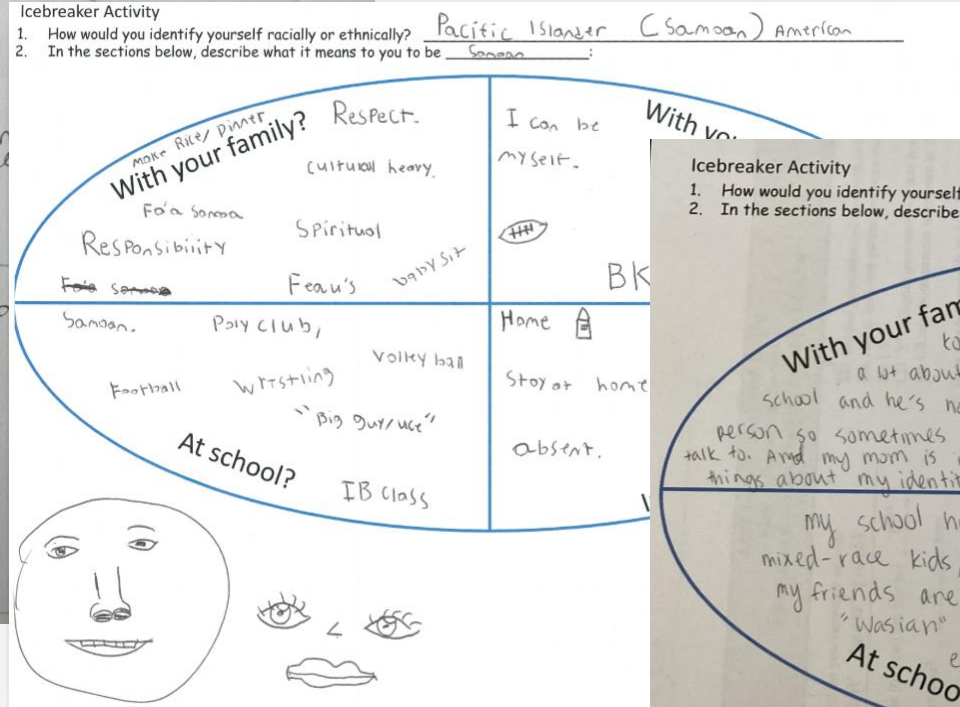 Icebreaker Activity
1. How would you identify yourself racially or ethnically? Pacific Islander (Samoan) American
2. In the sections below, describe what it means to you to be Samoan :
Make Rice/ Dinner
With your family?
Respect.
Cultural heavy.
Fa'a Samoa
Spiritual
Responsibility
Feau's
babysit
Fa'a Samoa
With yo
I can be
myself.
BK
Samoan.
Poly club,
Volleyball
Football
Wrestling
"Big guy/uce"
At school?
IB Class
Home
Stay at home
absent.
Icebreaker Activity
1. How would you identify yourself
2. In the sections below, describe
With your fam
a lot about
school and he's
person so sometimes
talk to. And my mom is
things about my identit
my school
mixed-race kids
my friends are
"wasian"
At schoo